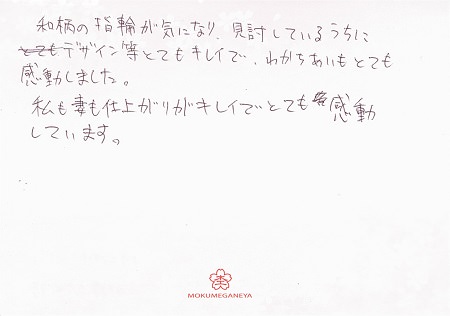 和柄の指輪が気になり、見討しているうちに
とてもデザイン等とてもキレイで、わかちあいもとても
感動しました。
私も妻も仕上がりがキレイでとても感動
しています。
MOKUMEGANEYA